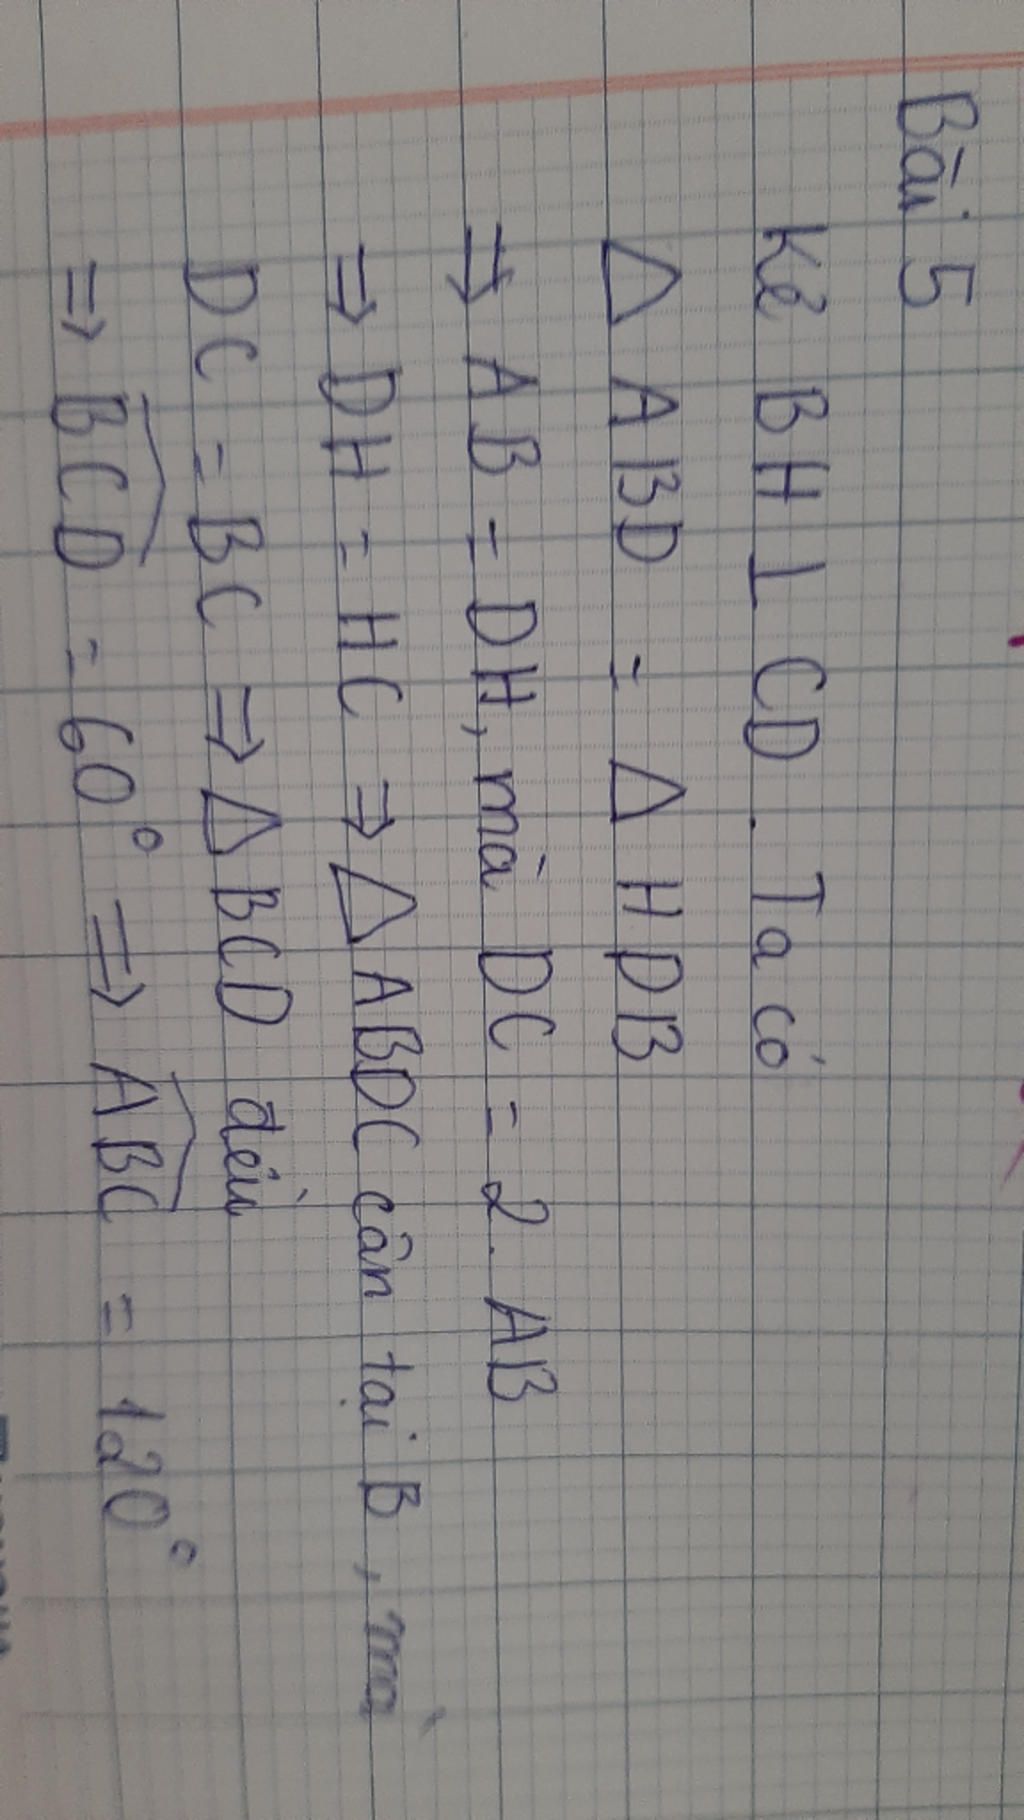 Bài 5
Kẻ BH ⊥ CD. Ta có
△ ABD = △ HDB
⇒ AB = DH, mà DC = 2. AB
⇒ DH = HC ⇒ △ ABDC cân tại B, mà
DC = BC ⇒ △ BCD đều
⇒ \widehat{BCD} = 60° ⇒ \widehat{ABC} = 120°